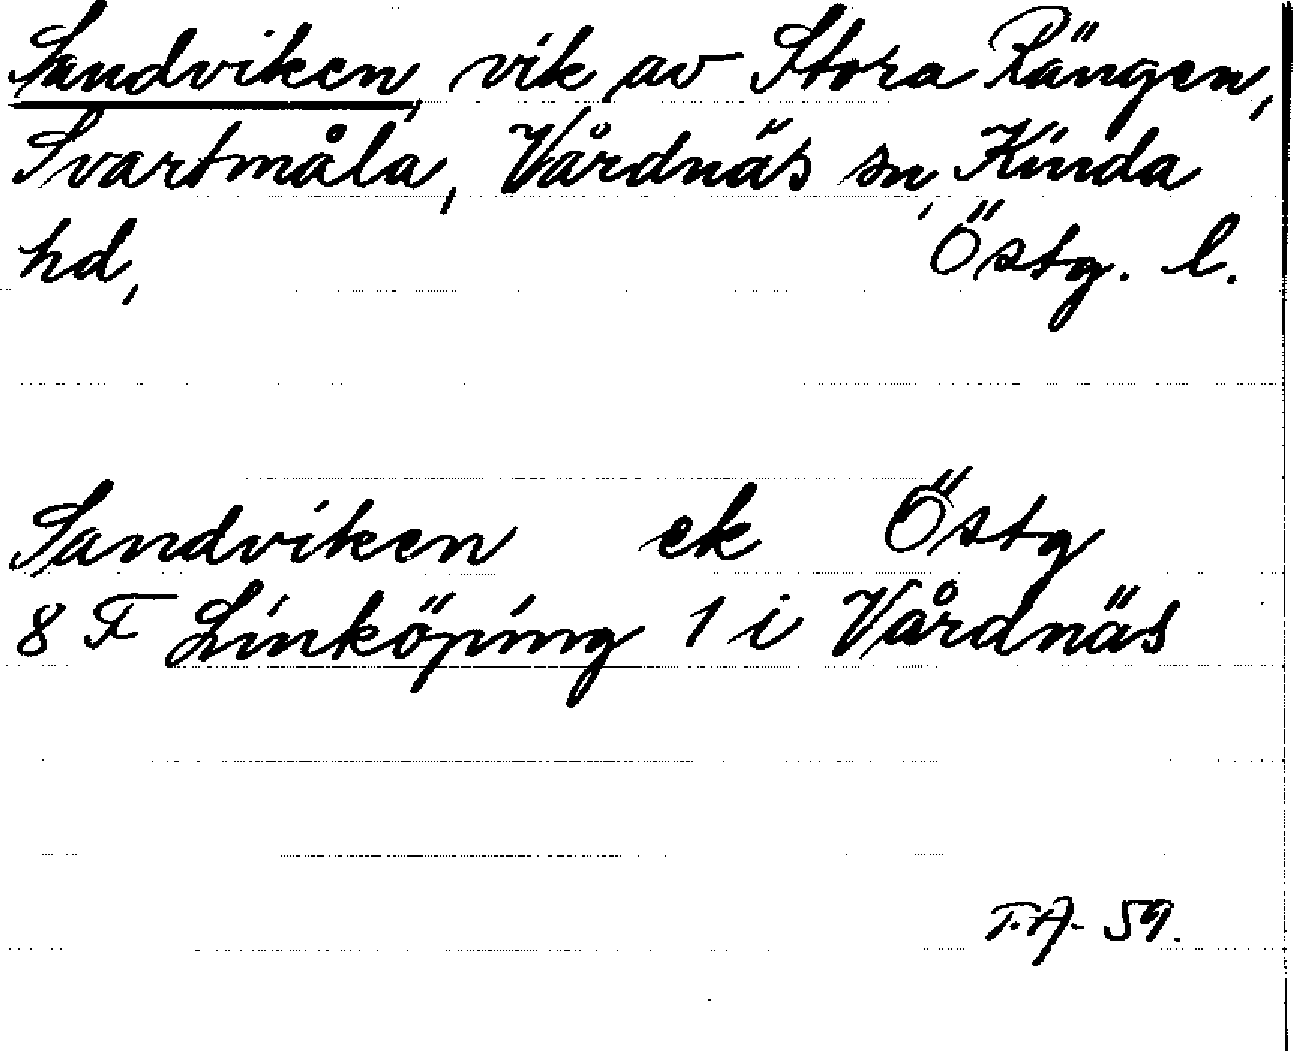 Sandviken, vik av Stora Rängen,
Svartmåla, Vårdnäs sn, Kinda
hd, Östg. l.
Sandviken ek Östg
8 F Linköping 1 i Vårdnäs
T.A. 59.